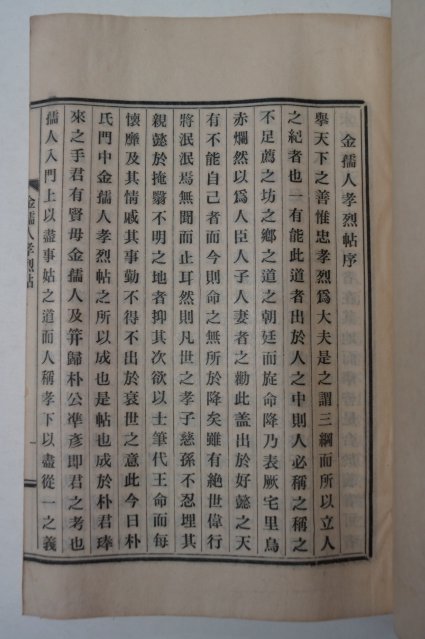 金孺人孝烈帖序
擧天下之善惟忠孝烈爲大夫是之謂三綱而所以立人
之紀者也一有能此道者出於人之中則人必稱之稱之
不足薦之坊之鄉之道之朝廷而㫌命降乃表厥宅里烏
赤爛然以爲人臣人子人妻者之勸此盖出於好懿之天
有不能自己者而今則命之無所於降矣雖有絶世偉行
將泯泯焉無聞而止耳然則凡世之孝子慈孫不忍埋其
親懿於掩翳不明之地者抑其次欲以士筆代王命而每
懷靡及其情戚其事勤不得不出於衰世之意此今日朴
氏門中金孺人孝烈帖之所以成也是帖也成於朴君琫
來之手君有賢母金孺人及筓歸朴公準彥即君之考也
孺人入門上以盡事姑之道而人稱孝下以盡從一之義
金孺人孝烈帖
一